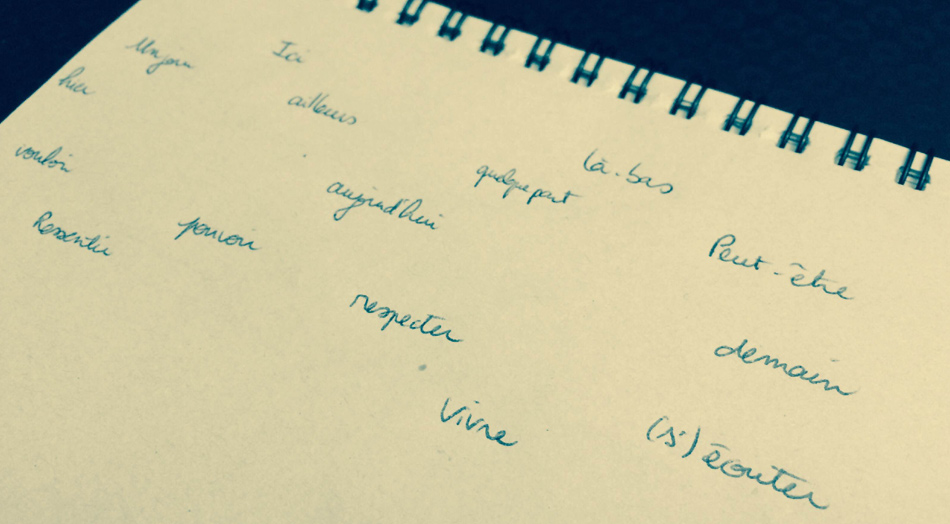 Un jour
Ici
hier
ailleurs
Là-bas
vouloir
quelque part
aujourd'hui
Ressentir
pouvoir
Peut-être
respecter
demain
Vivre
(s') écouter